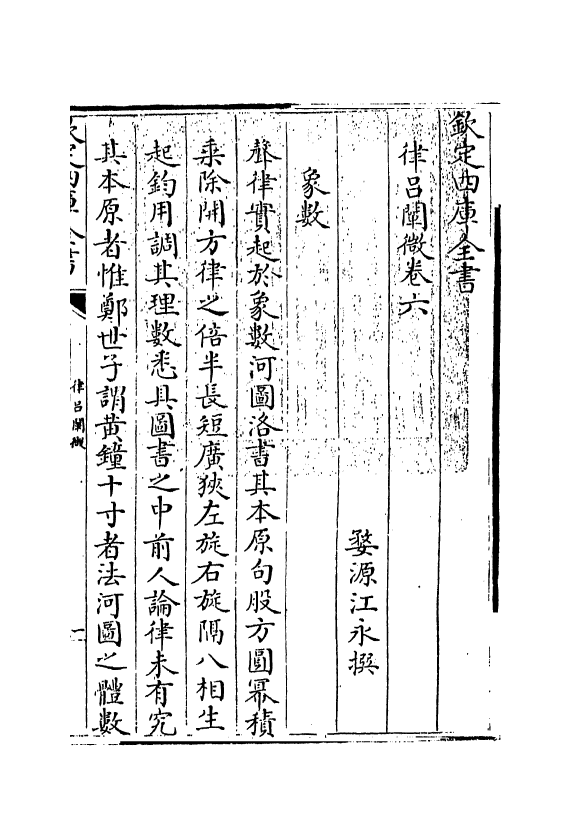 欽定四庫全書
律呂闡微卷六
婺源江永撰
象數
聲律實起於象數河圖洛書其本原句股方圓冪積
乘除開方律之倍半長短廣狹左旋右旋隔八相生
起鈞用調其理數悉具圖書之中前人論律未有究
其本原者惟鄭世子謂黃鐘十寸者法河圖之體數
欽定四庫全書
律呂闡微
一